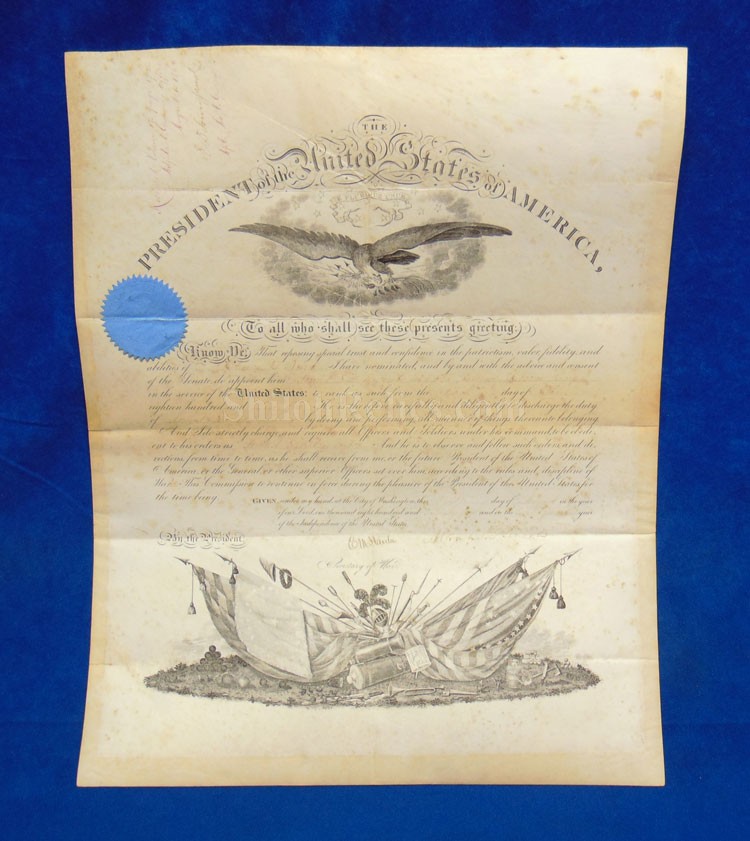 THE
PRESIDENT of the United States of AMERICA,
To all who shall see these presents greeting:
Know Ye, That reposing special trust and confidence in the patriotism, valor, fidelity, and
abilities of I have nominated, and by and with the advice and consent
of the Senate do appoint him
in the service of the United States: to rank as such from the day of
eighteen hundred and He is therefore carefully and diligently to discharge the duty
of by doing and performing all manner of things thereunto belonging.
And I do strictly charge, and require all Officers and Soldiers under his command to be obedi-
ent to his orders as And he is to observe and follow such orders and di-
rections from time to time, as he shall receive from me, or the future President of the United States of
America, or the General or other superior Officers set over him, according to the rules and discipline of
War. This Commission to continue in force during the pleasure of the President of the United States, for
the time being.
GIVEN under my hand at the City of Washington, this day of in the year
of our Lord one thousand eight hundred and and in the year
of the Independence of the United States.
By the President
Secretary of War.